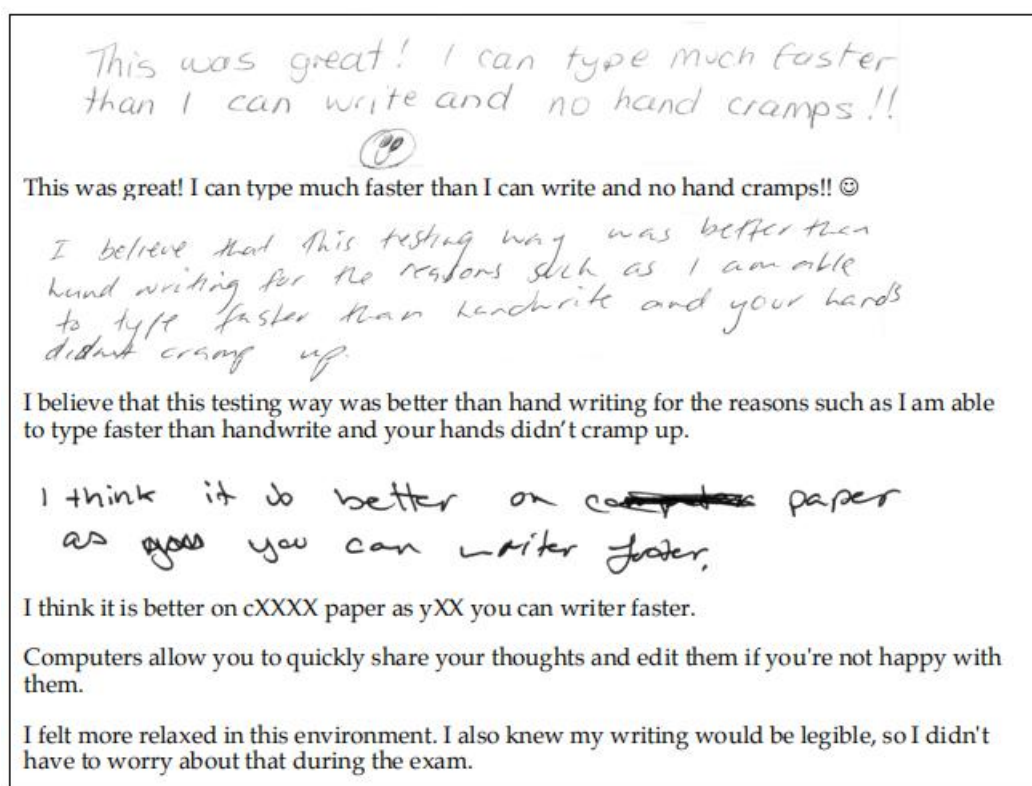 This was great! I can type much faster
than I can write and no hand cramps!!
This was great! I can type much faster than I can write and no hand cramps!! ☺
I believe that this testing way was better then
hand writing for the reasons such as I am able
to type faster than handwrite and your hands
didnt cramp up.
I believe that this testing way was better than hand writing for the reasons such as I am able
to type faster than handwrite and your hands didn't cramp up.
I think it is better on paper
as you can writer faster.
I think it is better on cXXXX paper as yXX you can writer faster.
Computers allow you to quickly share your thoughts and edit them if you're not happy with
them.
I felt more relaxed in this environment. I also knew my writing would be legible, so I didn't
have to worry about that during the exam.